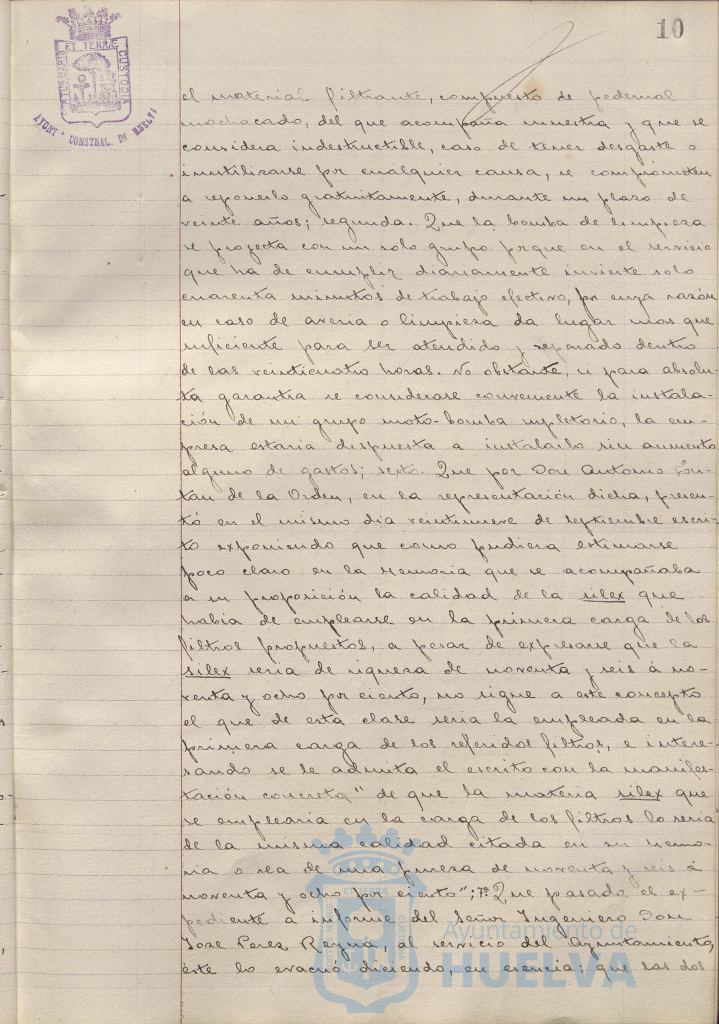 10
PORTUS MARIS ET TERRÆ CUSTODIA
AYUNTº CONSTNAL. DE HUELVA
el material filtrante, compuesto de pedernal
machacado, del que acompaña muestra y que se
considera indestructible, caso de tener desgaste o
inutilizarse por cualquier causa, se comprometen
a reponerlo gratuitamente, durante un plazo de
veinte años; segunda. Que la bomba de limpieza
se proyecta con un solo grupo porque en el servicio
que ha de cumplir diariamente invierte solo
cuarenta minutos de trabajo efectivo, por cuya razón
en caso de averia o limpieza da lugar mas que
suficiente para ser atendido y reparado dentro
de las veinticuatro horas. No obstante, si para absolu-
ta garantia se considerase conveniente la instala-
ción de un grupo moto-bomba supletorio, la em-
presa estaria dispuesta a instalarlo sin aumento
alguno de gastos; sexto. Que por Don Antonio Fon-
tan de la Orden, en la representación dicha, presen-
tó en el mismo dia veintinueve de septiembre escri-
to exponiendo que como pudiera estimarse
poco claro en la Memoria que se acompañaba
a su proposición la calidad de la silex que
habia de emplearse en la primera carga de los
filtros propuestos, a pesar de expresarse que la
silex seria de riqueza de noventa y seis á no-
venta y ocho por ciento, no sigue a este concepto
el que de esta clase seria la empleada en la
primera carga de los referidos filtros, e intere-
sando se le admita el escrito con la manifes-
tación concreta "de que la materia silex que
se emplearia en la carga de los filtros lo seria
de la misma calidad citada en su Memo-
ria o sea de una pureza de noventa y seis á
noventa y ocho por ciento"; 7º Que pasado el ex-
pediente a informe del Señor Ingeniero Don
Jose Perez Reyna, al servicio del Ayuntamiento,
éste lo evacuó diciendo, en esencia: que las dos
Ayuntamiento de
HUELVA